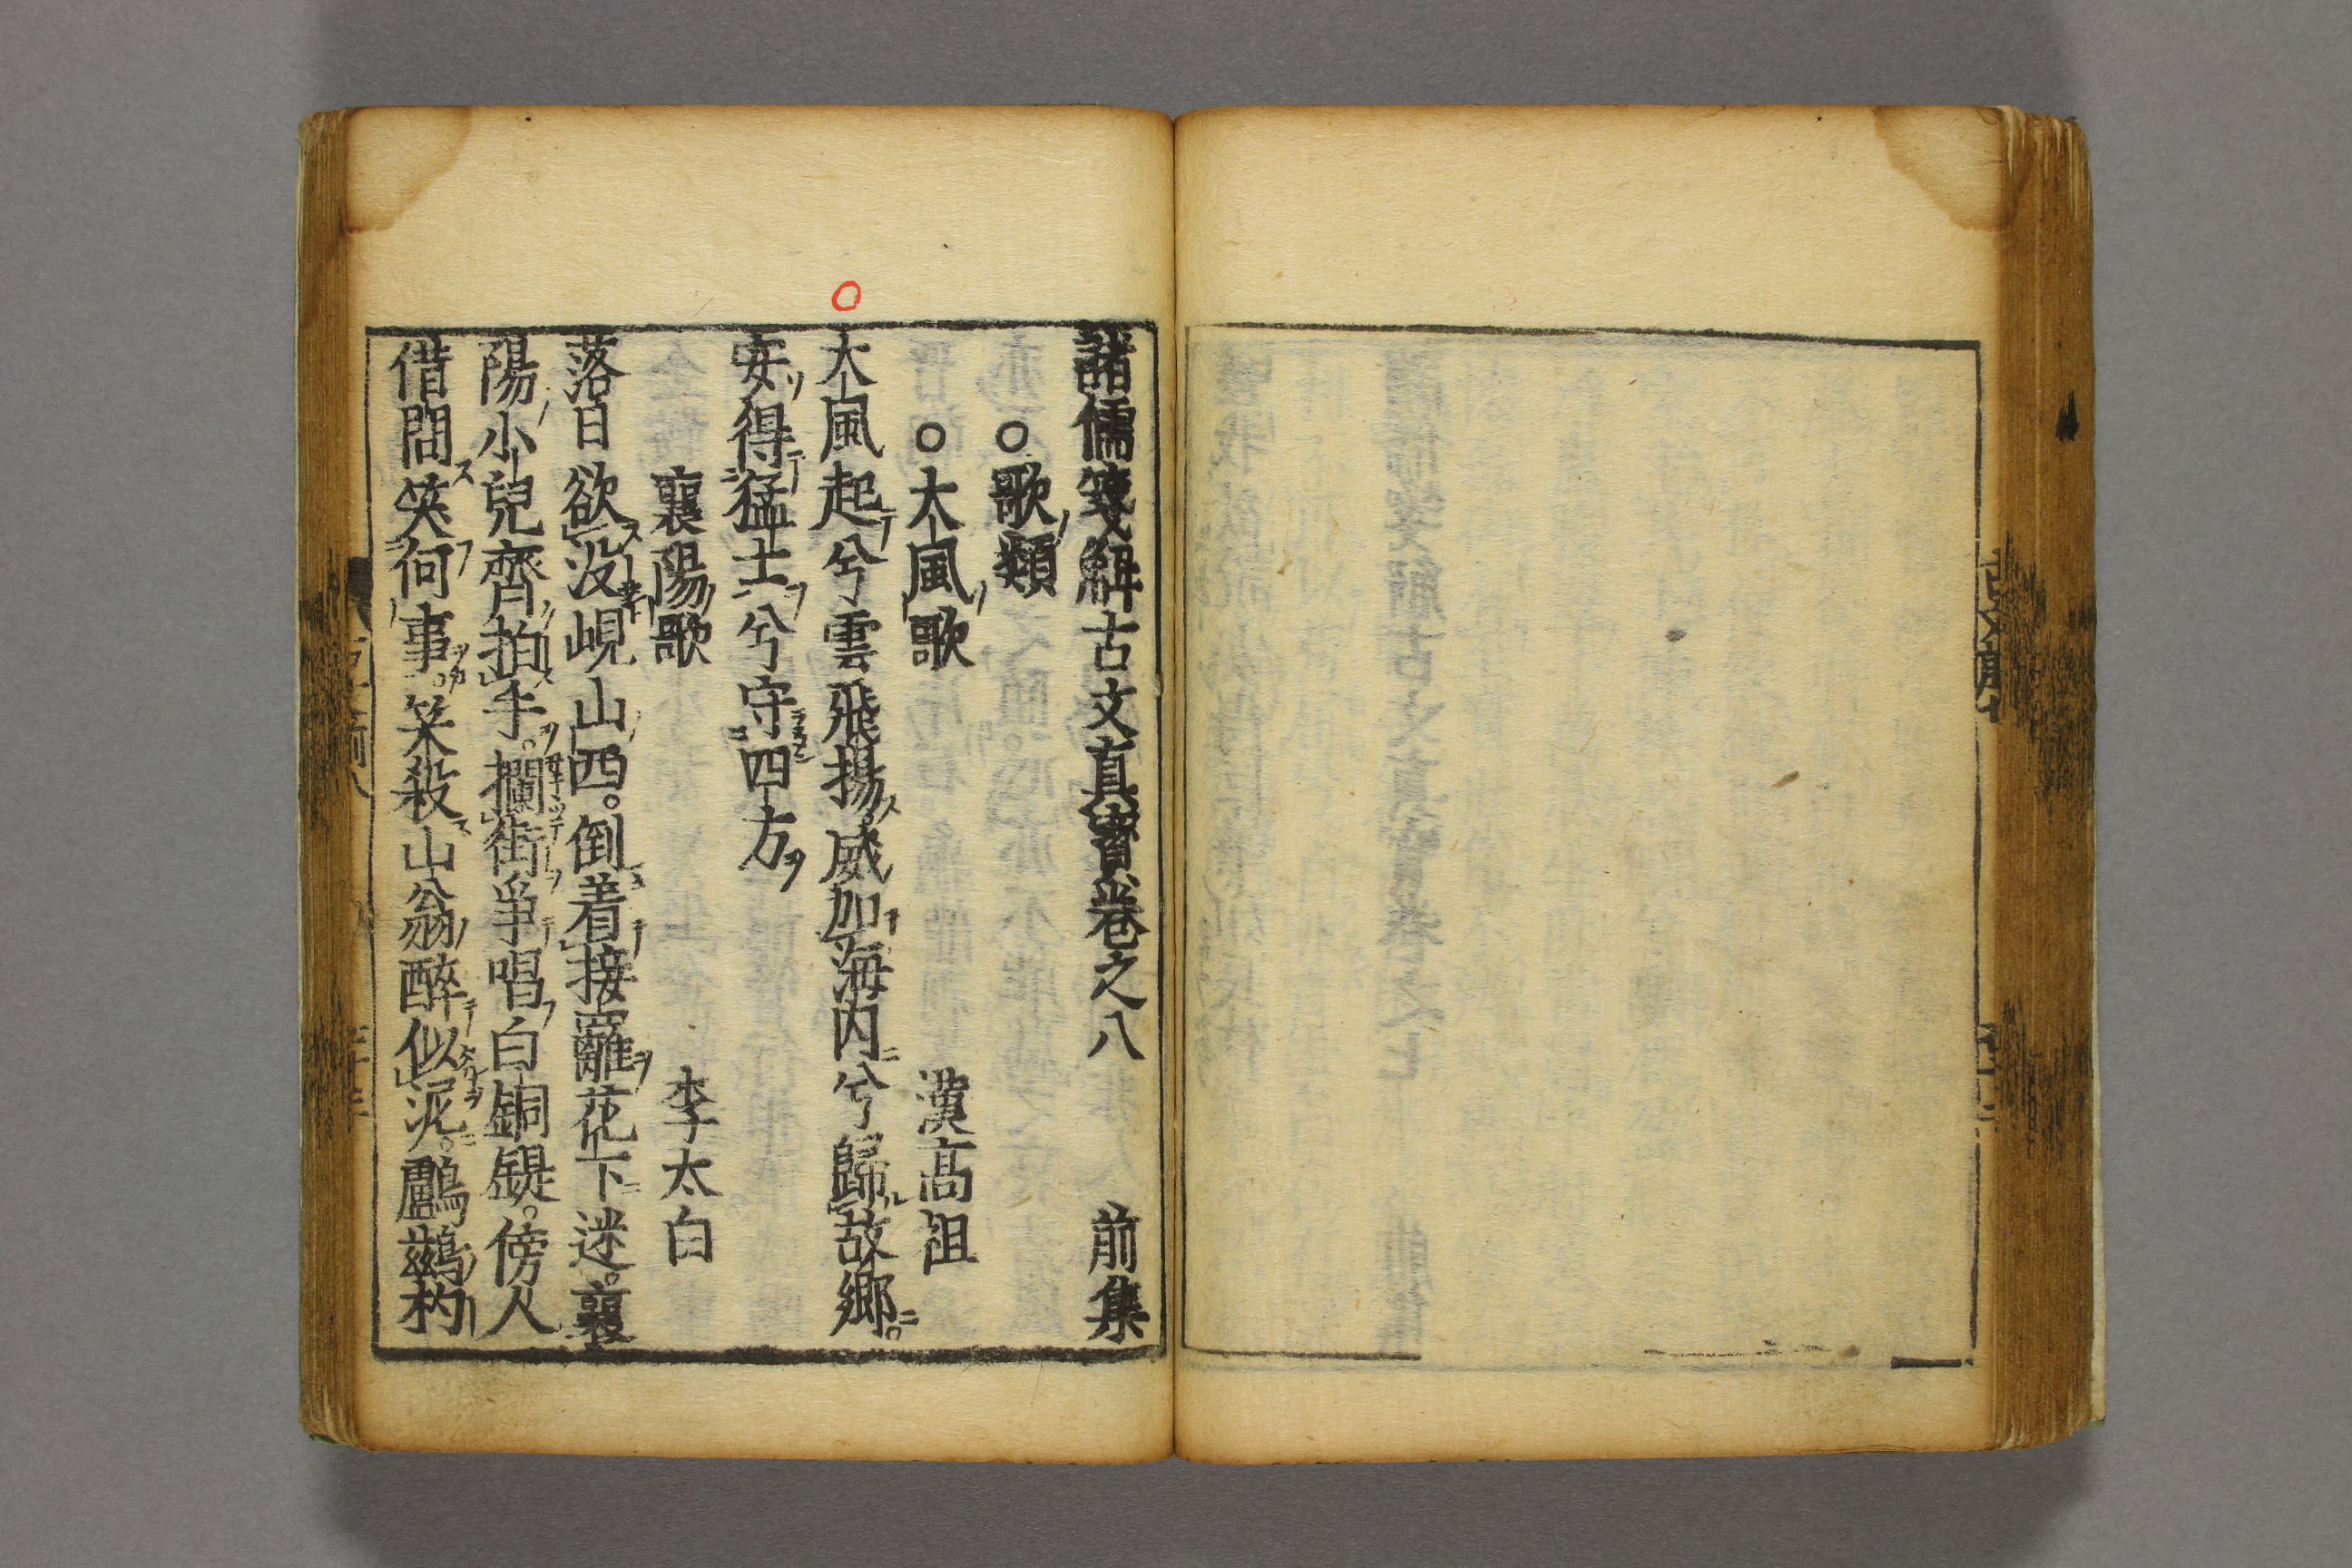 諸儒箋觧古文真寳卷之八 前集
○歌類
○大風歌 漢高祖
大風起兮雲飛揚。威加海内兮歸故郷。
安得猛士兮守四方
襄陽歌 李太白
落日欲没峴山西。倒着接䍦花下迷。襄
陽小兒齊拍手。攔街爭唱白銅鍉。傍人
借問笑何事。笑殺山翁醉似泥。鸕鷀杓